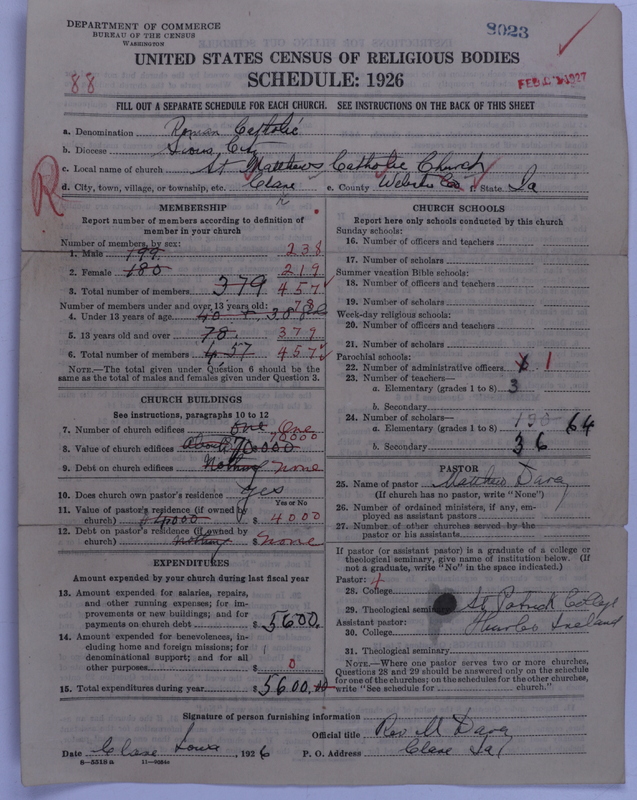 DEPARTMENT OF COMMERCE
BUREAU OF THE CENSUS
WASHINGTON
8023
UNITED STATES CENSUS OF RELIGIOUS BODIES
SCHEDULE: 1926
88
FILL OUT A SEPARATE SCHEDULE FOR EACH CHURCH. SEE INSTRUCTIONS ON THE BACK OF THIS SHEET
a. Denomination Roman Catholic
b. Diocese Sioux City
c. Local name of church St Matthews Catholic Church
d. City, town, village, or township, etc. Clare e. County Webster Co f. State Ia
R
MEMBERSHIP
Report number of members according to definition of
member in your church
Number of members, by sex:
1. Male 199 238
2. Female 180 219
3. Total number of members 379 457
Number of members under and over 13 years old: 78
4. Under 13 years of age
5. 13 years old and over 78. 379
6. Total number of members 457 457
NOTE.—The total given under Question 6 should be
same as the total of males and females given under Question 3.
CHURCH BUILDINGS
See instructions, paragraphs 10 to 12
7. Number of church edifices one One
8. Value of church edifices About 70000 70000
9. Debt on church edifices Nothing None
10. Does church own pastor's residence? Yes
Yes or No
11. Value of pastor's residence (if owned by
church) 4000 $ 4000
12. Debt on pastor's residence (if owned by
church) nothing $ None
EXPENDITURES
Amount expended by your church during last fiscal year
13. Amount expended for salaries, repairs,
and other running expenses; for im-
provements or new buildings; and for
payments on church debt $ 5600.
14. Amount expended for benevolences, in-
cluding home and foreign missions; for
denominational support; and for all
other purposes $ 0
15. Total expenditures during year $ 5600.00
CHURCH SCHOOLS
Report here only schools conducted by this church
Sunday schools:
16. Number of officers and teachers
17. Number of scholars
Summer vacation Bible schools:
18. Number of officers and teachers
19. Number of scholars
Week-day religious schools:
20. Number of officers and teachers
21. Number of scholars
Parochial schools:
22. Number of administrative officers 1
23. Number of teachers—
a. Elementary (grades 1 to 8) 3
b. Secondary
24. Number of scholars—
a. Elementary (grades 1 to 8) 64
b. Secondary 36
PASTOR
25. Name of pastor Matthew
(If church has no pastor, write "None")
26. Number of ordained ministers, if any, em-
ployed as assistant pastors
27. Number of other churches served by the
pastor or his assistants
If pastor (or assistant pastor) is a graduate of a college or
theological seminary, give name of institution below. (If
not a graduate, write "No" in the space indicated.)
Pastor:
28. College
29. Theological seminary St. Patrick College
Assistant pastor: Thurles Ireland
30. College
31. Theological seminary
NOTE.—Where one pastor serves two or more churches,
Questions 28 and 29 should be answered only on the schedule
for one of the churches; on the schedules for the other churches,
write "See schedule for church."
Signature of person furnishing information
Official title Rev M
Date Clare Iowa, 1926 P. O. Address Clare Ia